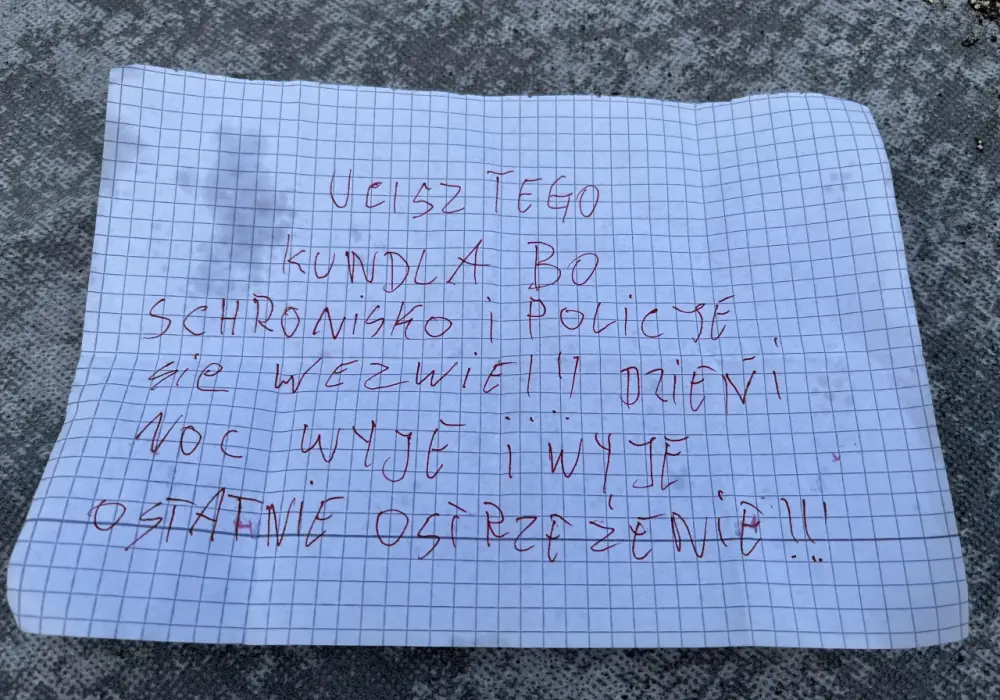 UCISZ TEGO
KUNDLA BO
SCHRONiSKO i POLiCJE
sie WEZWIE!!! DZIEŃ i
NOC WYJE i WYJE
OSTATNIE OSTRZEŻENIE!!!